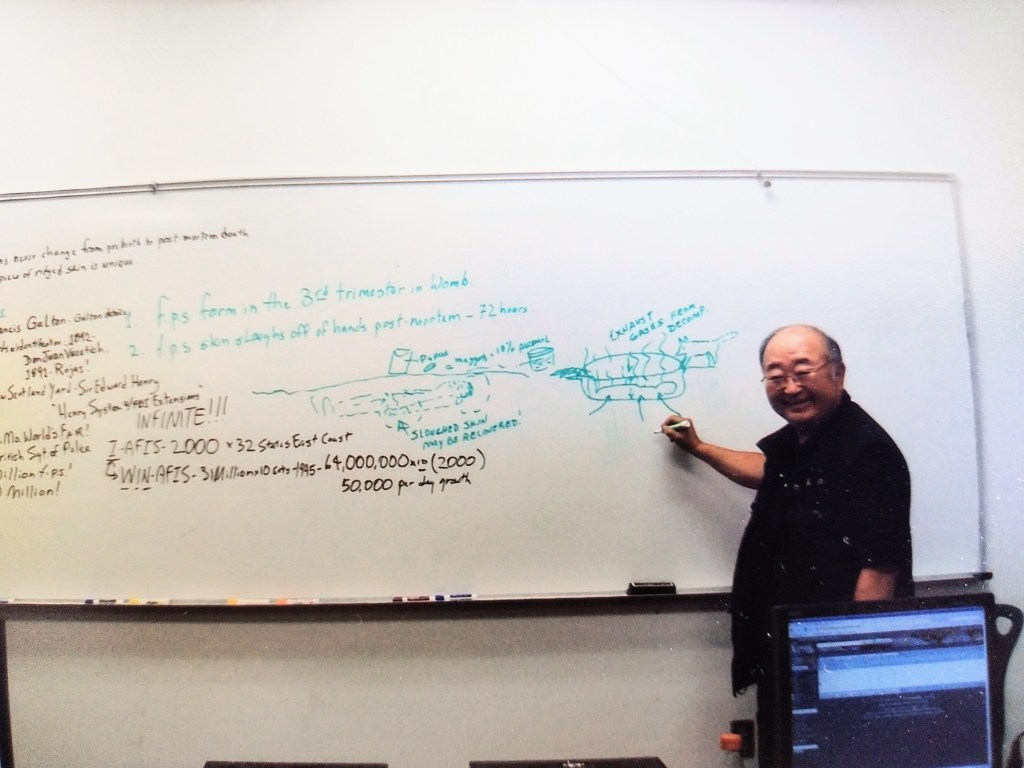 never change from prebirth to post-mortem death
of ridged skin is unique.
Galton - Galton
1892 -
Don Juan Vucetich
1892 - Rojas!
Scotland Yard - Sir Edward Henry
"Henry System w/FBI Extensions"
INFINITE!!!
Mo. World's Fair!
Sgt of Police
illion f.ps.!
Million!
1. f.ps form in the 3rd trimester in Womb.
2. f.ps skin sloughs off of hands post-mortem - 72 hours
Pupae maggots - 10%
EXHAUST
GASES FROM
DECOMP.
SLOUGHED SKIN
MAY BE RECOVERED!
I-AFIS - 2000 x 32 States East Coast
WIN-AFIS - 31 Million x 10 - 1995 - 64,000,000 x 10 (2000)
50,000 per day growth